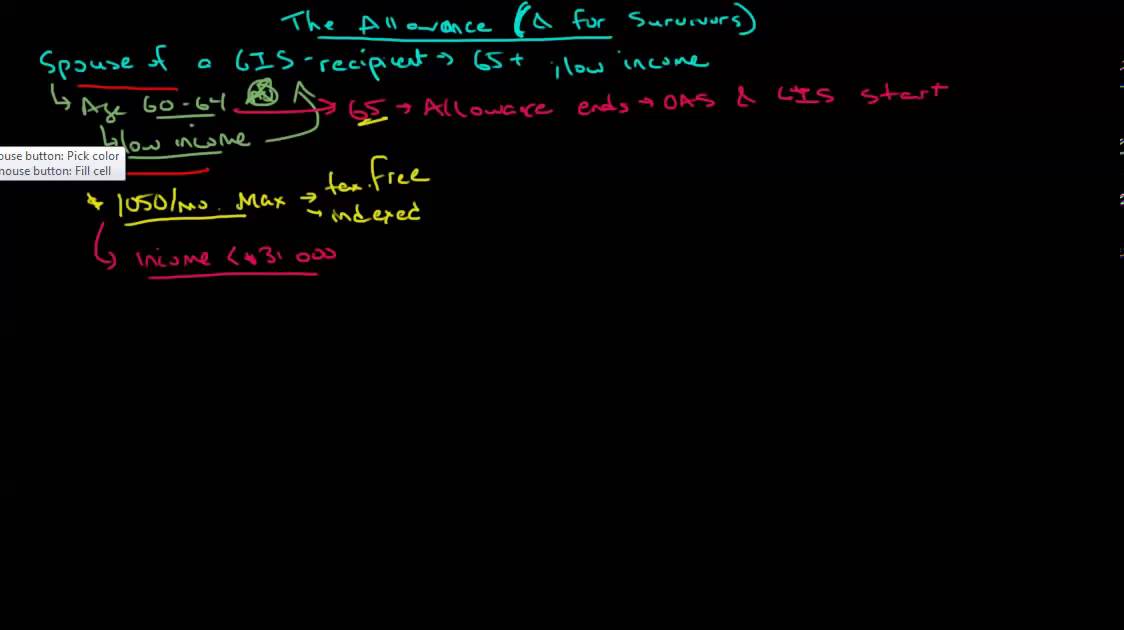 The Allowance (A for Survivors)
Spouse of a GIS-recipient → 65+, low income
↳ Age 60-64 A → 65 → Allowance ends → OAS & GIS start
↳ low income
ouse button: Pick color
nouse button: Fill cell
* 1050/mo. Max → tax-free
→ indexed
↳ Income < $31 000